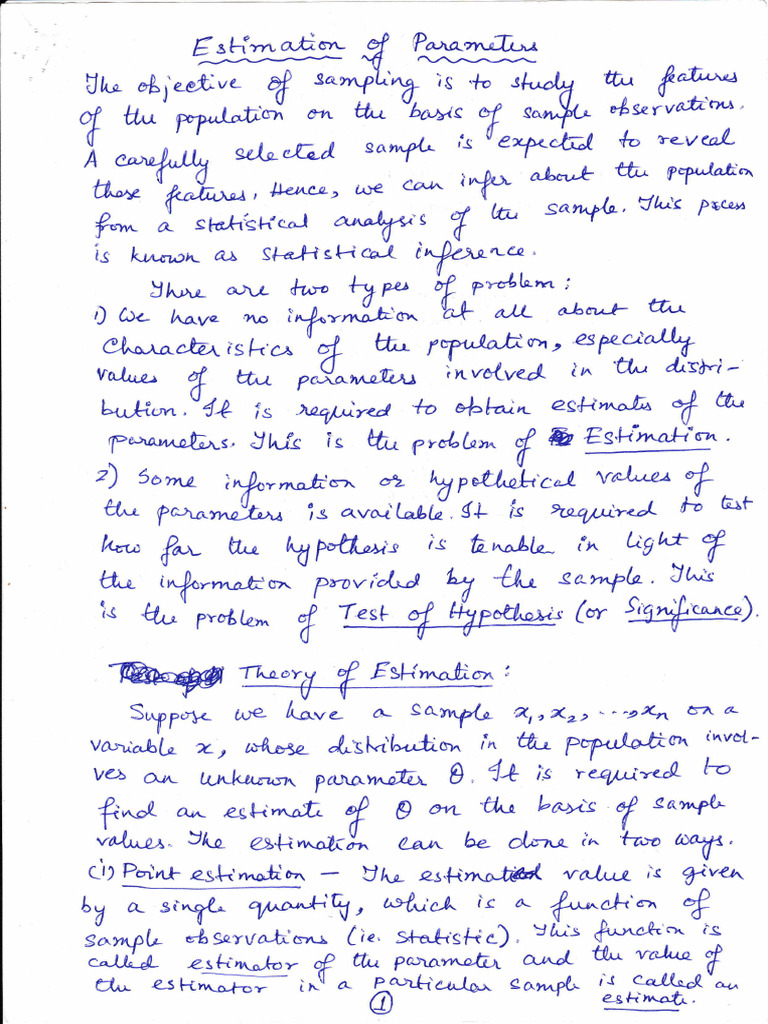 Estimation of Parameters
The objective of sampling is to study the features
of the population on the basis of sample observations.
A carefully selected sample is expected to reveal
these features. Hence, we can infer about the population
from a statistical analysis of the sample. This process
is known as statistical inference.
There are two types of problem:
1) We have no information at all about the
characteristics of the population, especially
values of the parameters involved in the distri-
bution. It is required to obtain estimates of the
parameters. This is the problem of Estimation.
2) Some information or hypothetical values of
the parameters is available. It is required to test
how far the hypothesis is tenable in light of
the information provided by the sample. This
is the problem of Test of Hypothesis (or Significance).
Theory of Estimation:
Suppose we have a sample x₁, x₂, ...., xn on a
variable x, whose distribution in the population invol-
ves an unknown parameter θ. It is required to
find an estimate of θ on the basis of sample
values. The estimation can be done in two ways.
(i) Point estimation – The estimated value is given
by a single quantity, which is a function of
sample observations (ie. statistic). This function is
called estimator of the parameter and the value of
the estimator in a particular sample is called an
estimate.
1